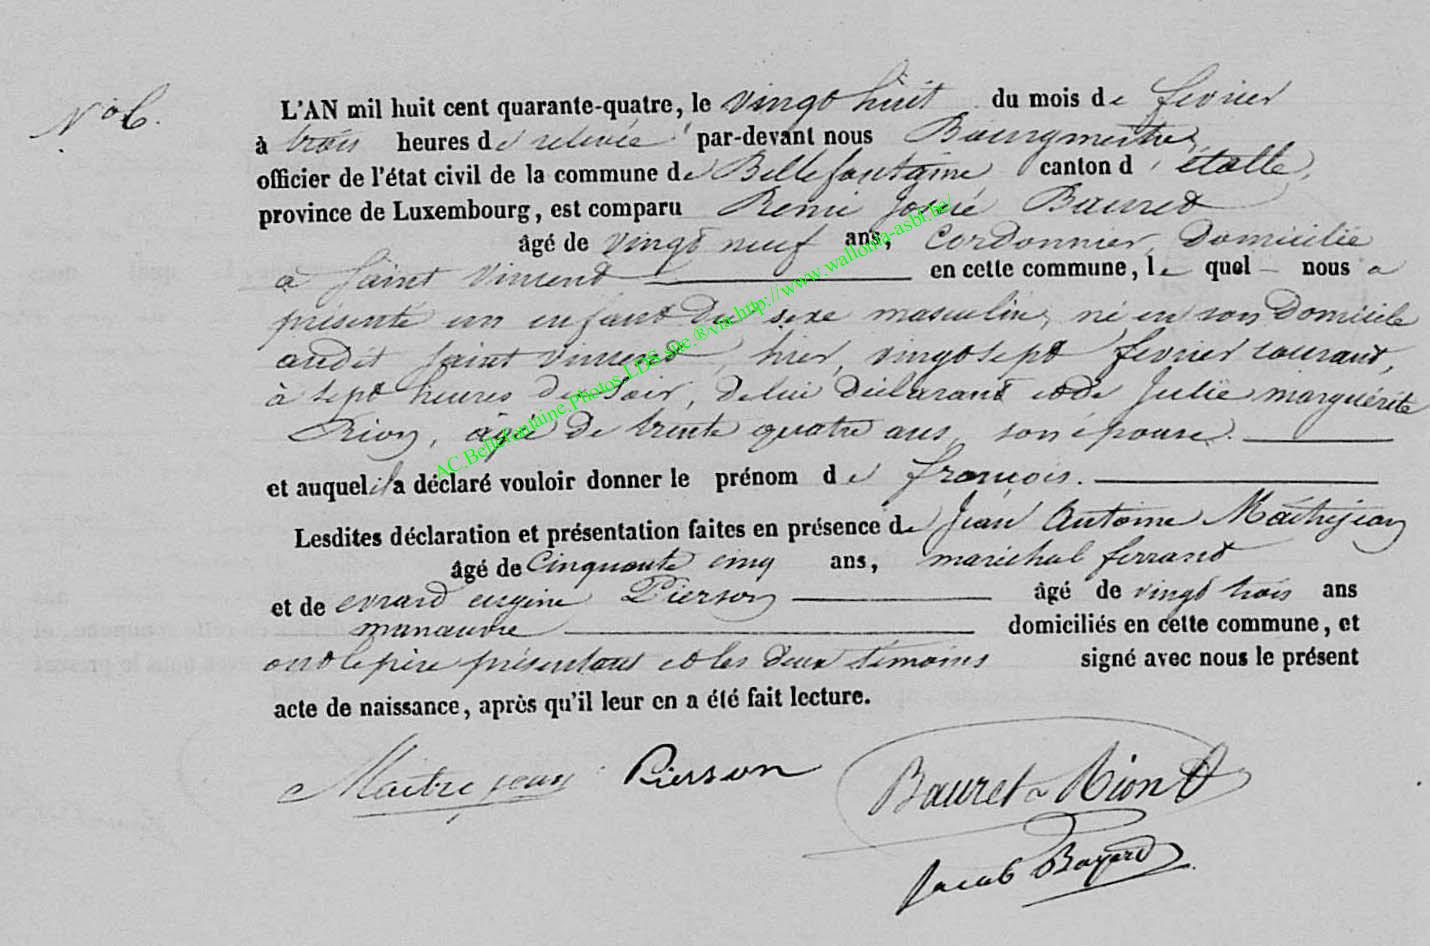 N° 6.
L'AN mil huit cent quarante-quatre, le vingt huit du mois de fevrier
à trois heures de relevée par-devant nous Bourgmestre,
officier de l'état civil de la commune de Bellefontaine canton d'étalle,
province de Luxembourg, est comparu Remi Josué Bauret
âgé de vingt neuf ans, cordonnier, domicilié
à Saint Vincent en cette commune, le quel nous a
présenté un enfant du sexe masculin, né en son domicile
audit Saint Vincent, hier, vingt sept fevrier courant,
à sept heures du soir, de lui déclarant et de Julie marguérite
Rion, âgé de trente quatre ans, son épouse.
et auquel il a déclaré vouloir donner le prénom de françois.
Lesdites déclaration et présentation faites en présence de Jean Antoine Maitrejean
âgé de Cinquante cinq ans, maréchal ferrant
et de evrard eugène Pierson âgé de vingt trois ans
manœuvre domiciliés en cette commune, et
ont le père présentant et les deux témoins signé avec nous le présent
acte de naissance, après qu'il leur en a été fait lecture.
Maitrejean Pierson Bauret Rion
Jacob Bayard
AC.Bellefontaine.Photos.LDS.site.®via.http://www.wallonia-asbl.be/